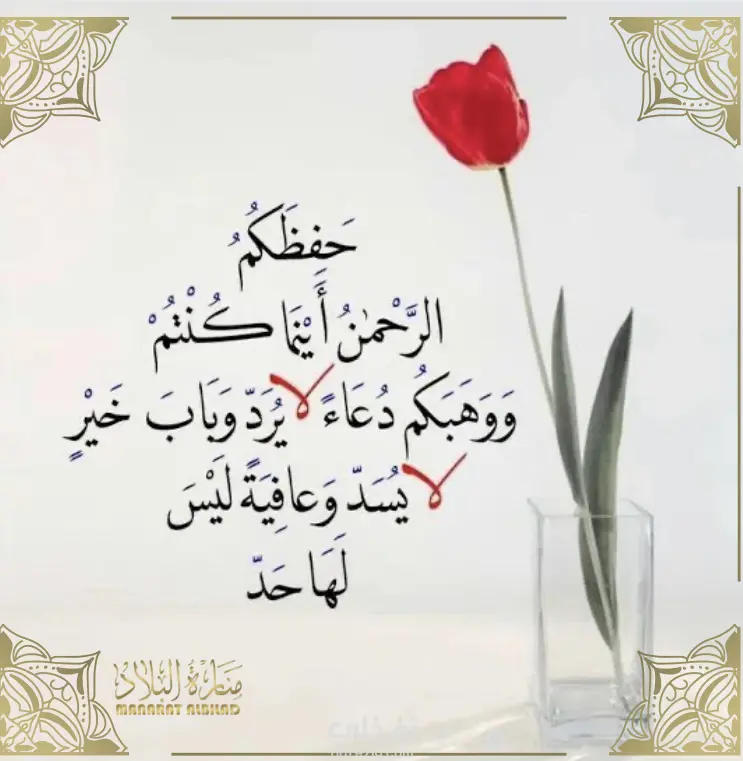 حَفِظَكُمُ
الرَّحْمٰنُ أَيْنَمَا كُنْتُمْ
وَوَهَبَكُم دُعَاءً لا يُرَدّ وَبَابَ خَيْرٍ
لا يُسَدّ وَعافِيَةً لَيْسَ
لَهَا حَدّ
مَنَارَةُ البِلَادِ
MANARAT ALBILAD